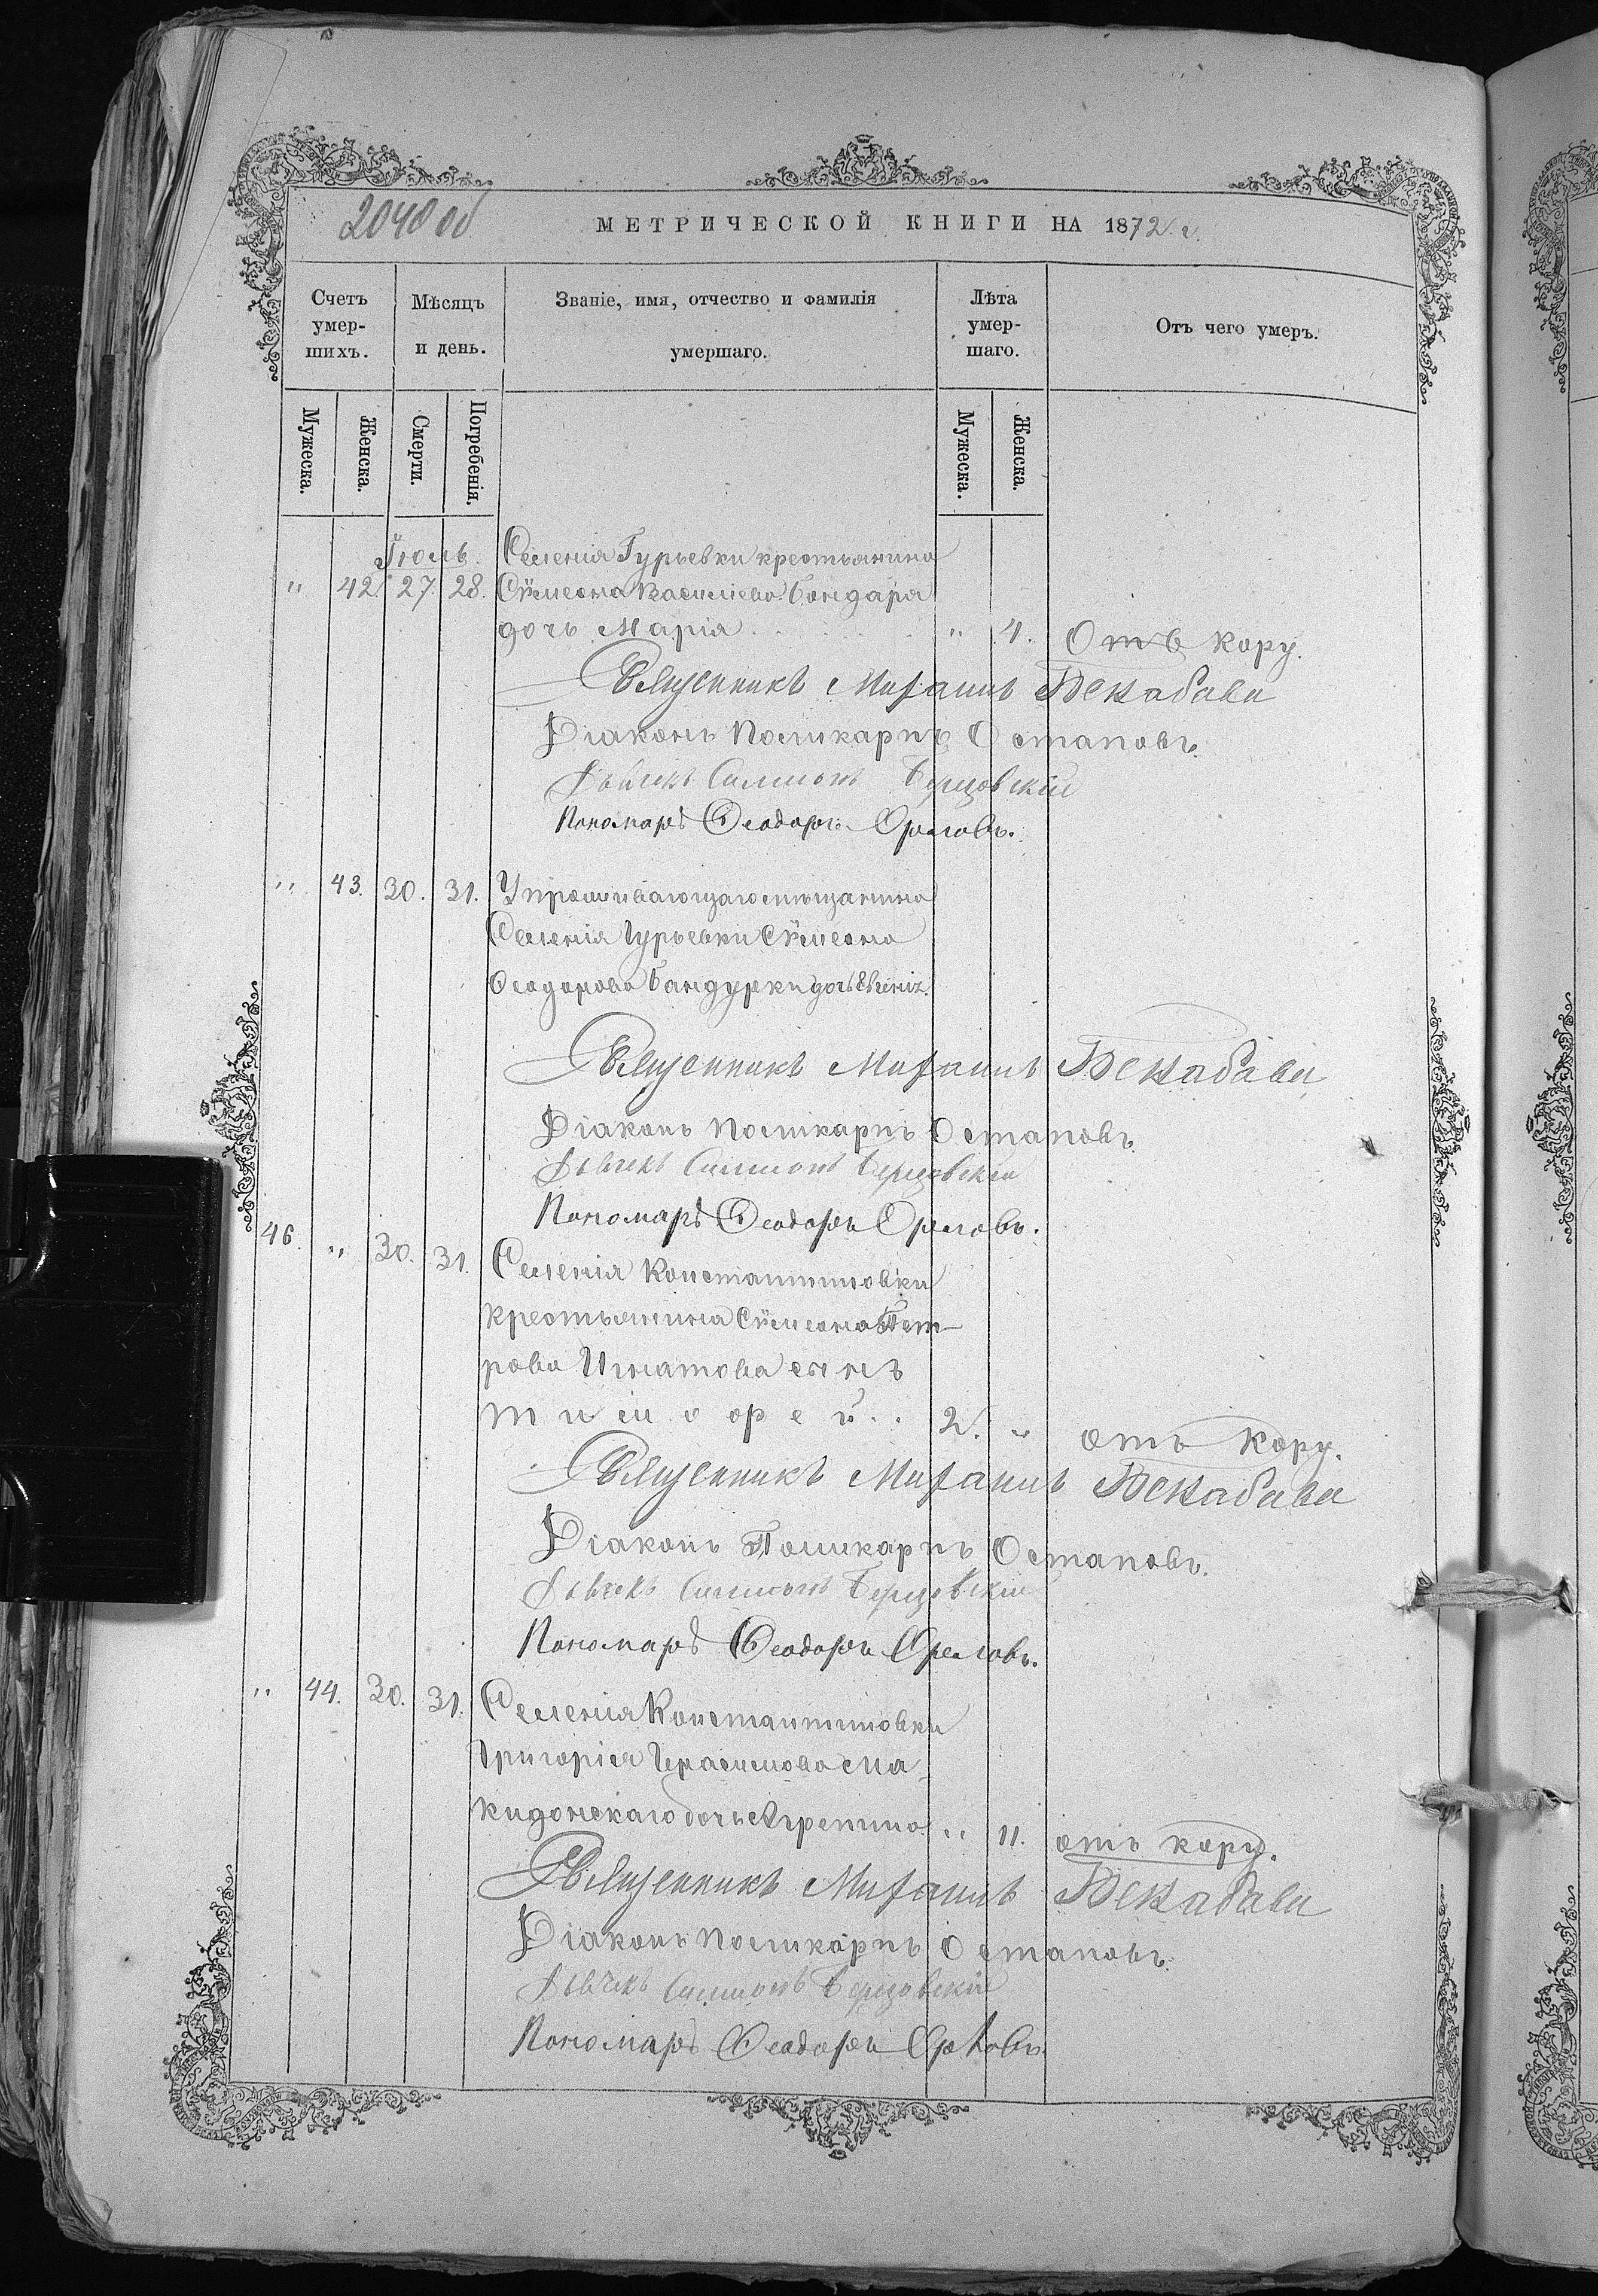 2040 об
МЕТРИЧЕСКОЙ КНИГИ НА 1872 г.
Счетъ умер-шихъ.
Мѣсяцъ и день.
Званіе, имя, отчество и фамилія умершаго.
Лѣта умер-шаго.
Отъ чего умеръ.
Мужеска.
Женска.
Смерти.
Погребенія.
Мужеска.
Женска.
Іюль. Селенія Гурьевки крестьянина
" 42. 27. 28. Сѵмеона Василіева Бондаря
дочь Марія . . . . . " 4. Отъ кору.
Священникъ Михаилъ
Діаконъ Поликарпъ Остаповъ.
Дьячекъ Симеонъ Березовскій
Пономарь Ѳеодоръ Орловъ.
" 43. 30. 31. У проживающаго мѣщанина
Селенія Гурьевки Сѵмеона
Ѳеодорова Бандурки дочь Евгенія.
Священникъ Михаилъ
Діаконъ Поликарпъ Остаповъ.
Дьячекъ Симеонъ Березовскій
Пономарь Ѳеодоръ Орловъ.
46. " 30. 31. Селенія Константиновки
крестьянина Сѵмеона Пет-
рова Игнатова сынъ
Тимоѳей . . 2. " отъ кору.
Священникъ Михаилъ
Діаконъ Поликарпъ Остаповъ.
Дьячекъ Симеонъ Березовскій
Пономарь Ѳеодоръ Орловъ.
" 44. 30. 31. Селенія Константиновки
Григорія Герасимова Ма-
кидонскаго дочь Агрепина. " 11. отъ кору.
Священникъ Михаилъ
Діаконъ Поликарпъ Остаповъ.
Дьячекъ Симеонъ Березовскій
Пономарь Ѳеодоръ Орловъ.